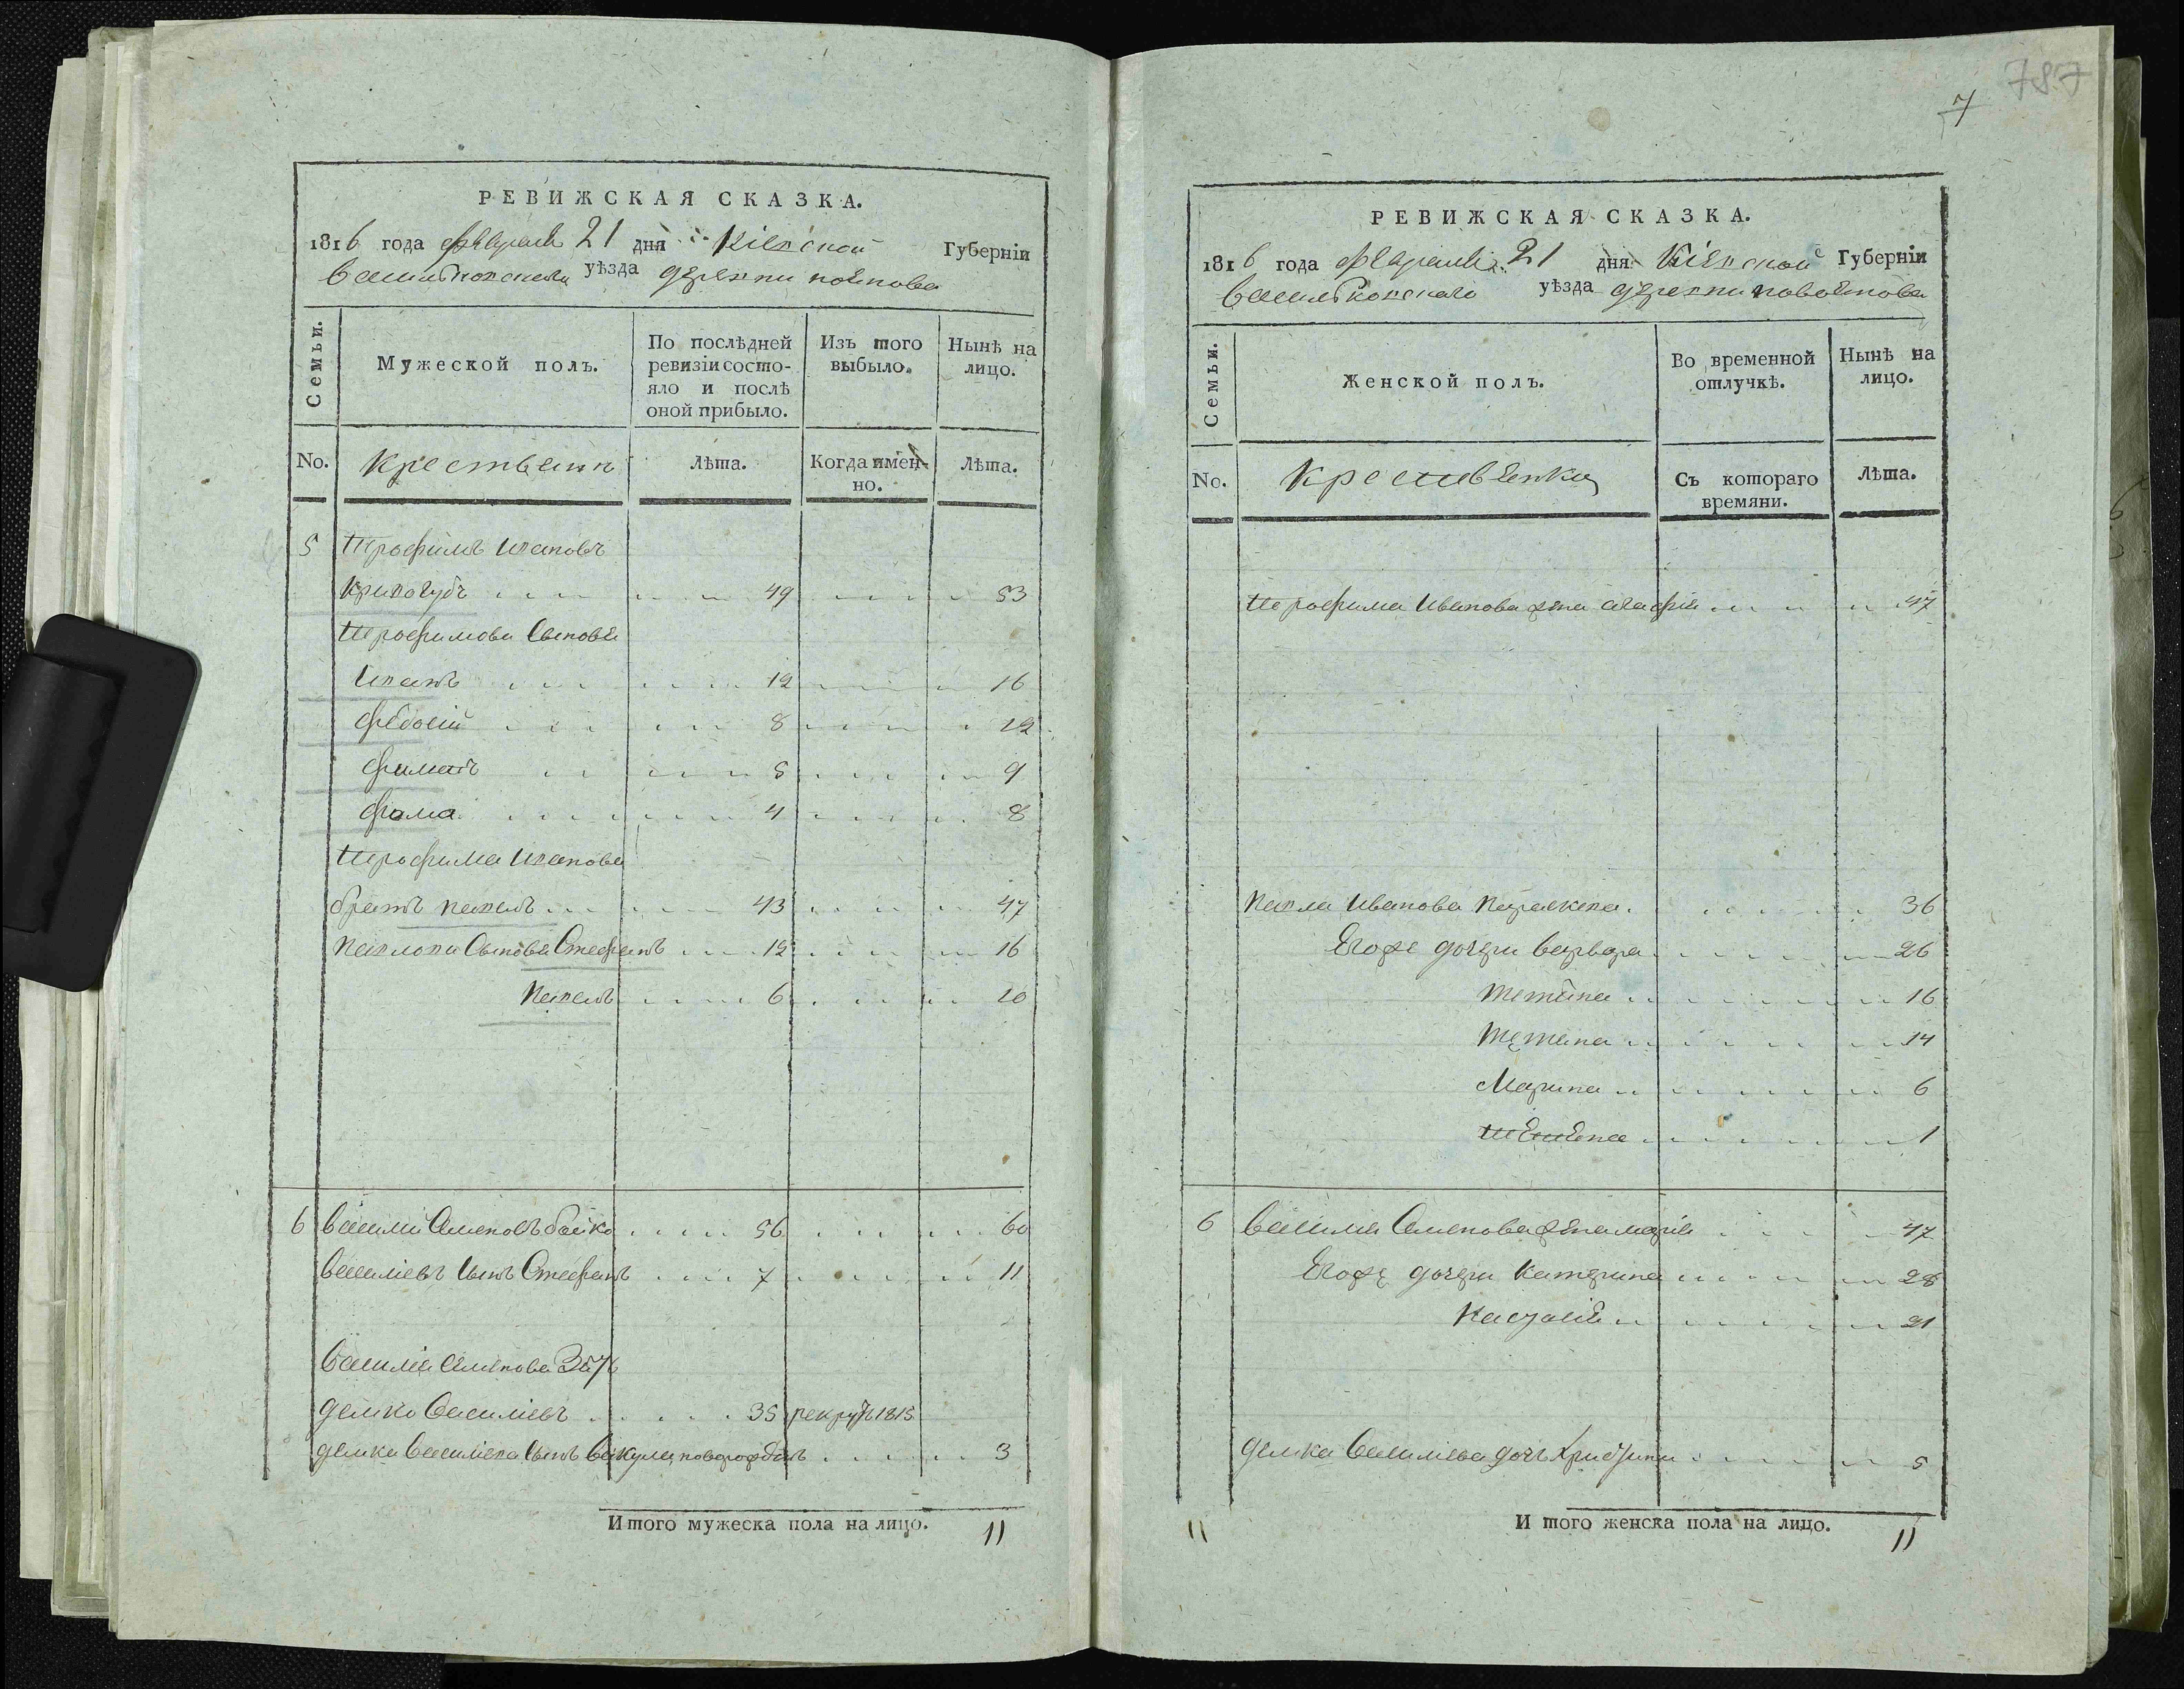 РЕВИЖСКАЯ СКАЗКА.
1816 года февраля 21 дня Кіевской Губерніи
Васильковскаго уѣзда деревни
Семьи.
Мужеской полъ.
По послѣдней ревизіи состояло и послѣ оной прибыло.
Изъ того выбыло.
Нынѣ на лицо.
No.
Крестьянъ
Лѣта.
Когда имен-но.
Лѣта.
5 Трофимъ Ивановъ
Кривогубъ 49 53
Трофимови Сыновья
Иванъ 12 16
Федосій 8 12
5 9
Фома 4 8
Трофима Иванова
братъ Павелъ 43 47
Павлови Сыновья Стефанъ 12 16
Павелъ 6 10
6 Василий Семеновъ бойко 56 60
Василіевъ Сынъ Стефанъ 7 11
Василія Семенова Зять
Демко Василіевъ 35 рекрутъ 1815
Демка Василіева Сынъ Вакула новорожденъ 3
Итого мужеска пола на лицо. 11
787
7
РЕВИЖСКАЯ СКАЗКА.
1816 года Февраля 21 дня Кіевской Губерніи
Васильковскаго уѣзда деревни
Семьи.
Женской полъ.
Во временной отлучкѣ.
Нынѣ на лицо.
No.
Крестьянки
Съ котораго времяни.
Лѣта.
Трофима Иванова жена Агафія 47
Павла Иванова Параскева 36
Егоже дочери Варвара 26
Татіана 16
Татіана 14
Марина 6
1
6 Василія Семенова жена Марія 47
Егоже дочери Катерина 28
Настасія 21
Демка Василіева дочь Христина 5
11
Итого женска пола на лицо. 11